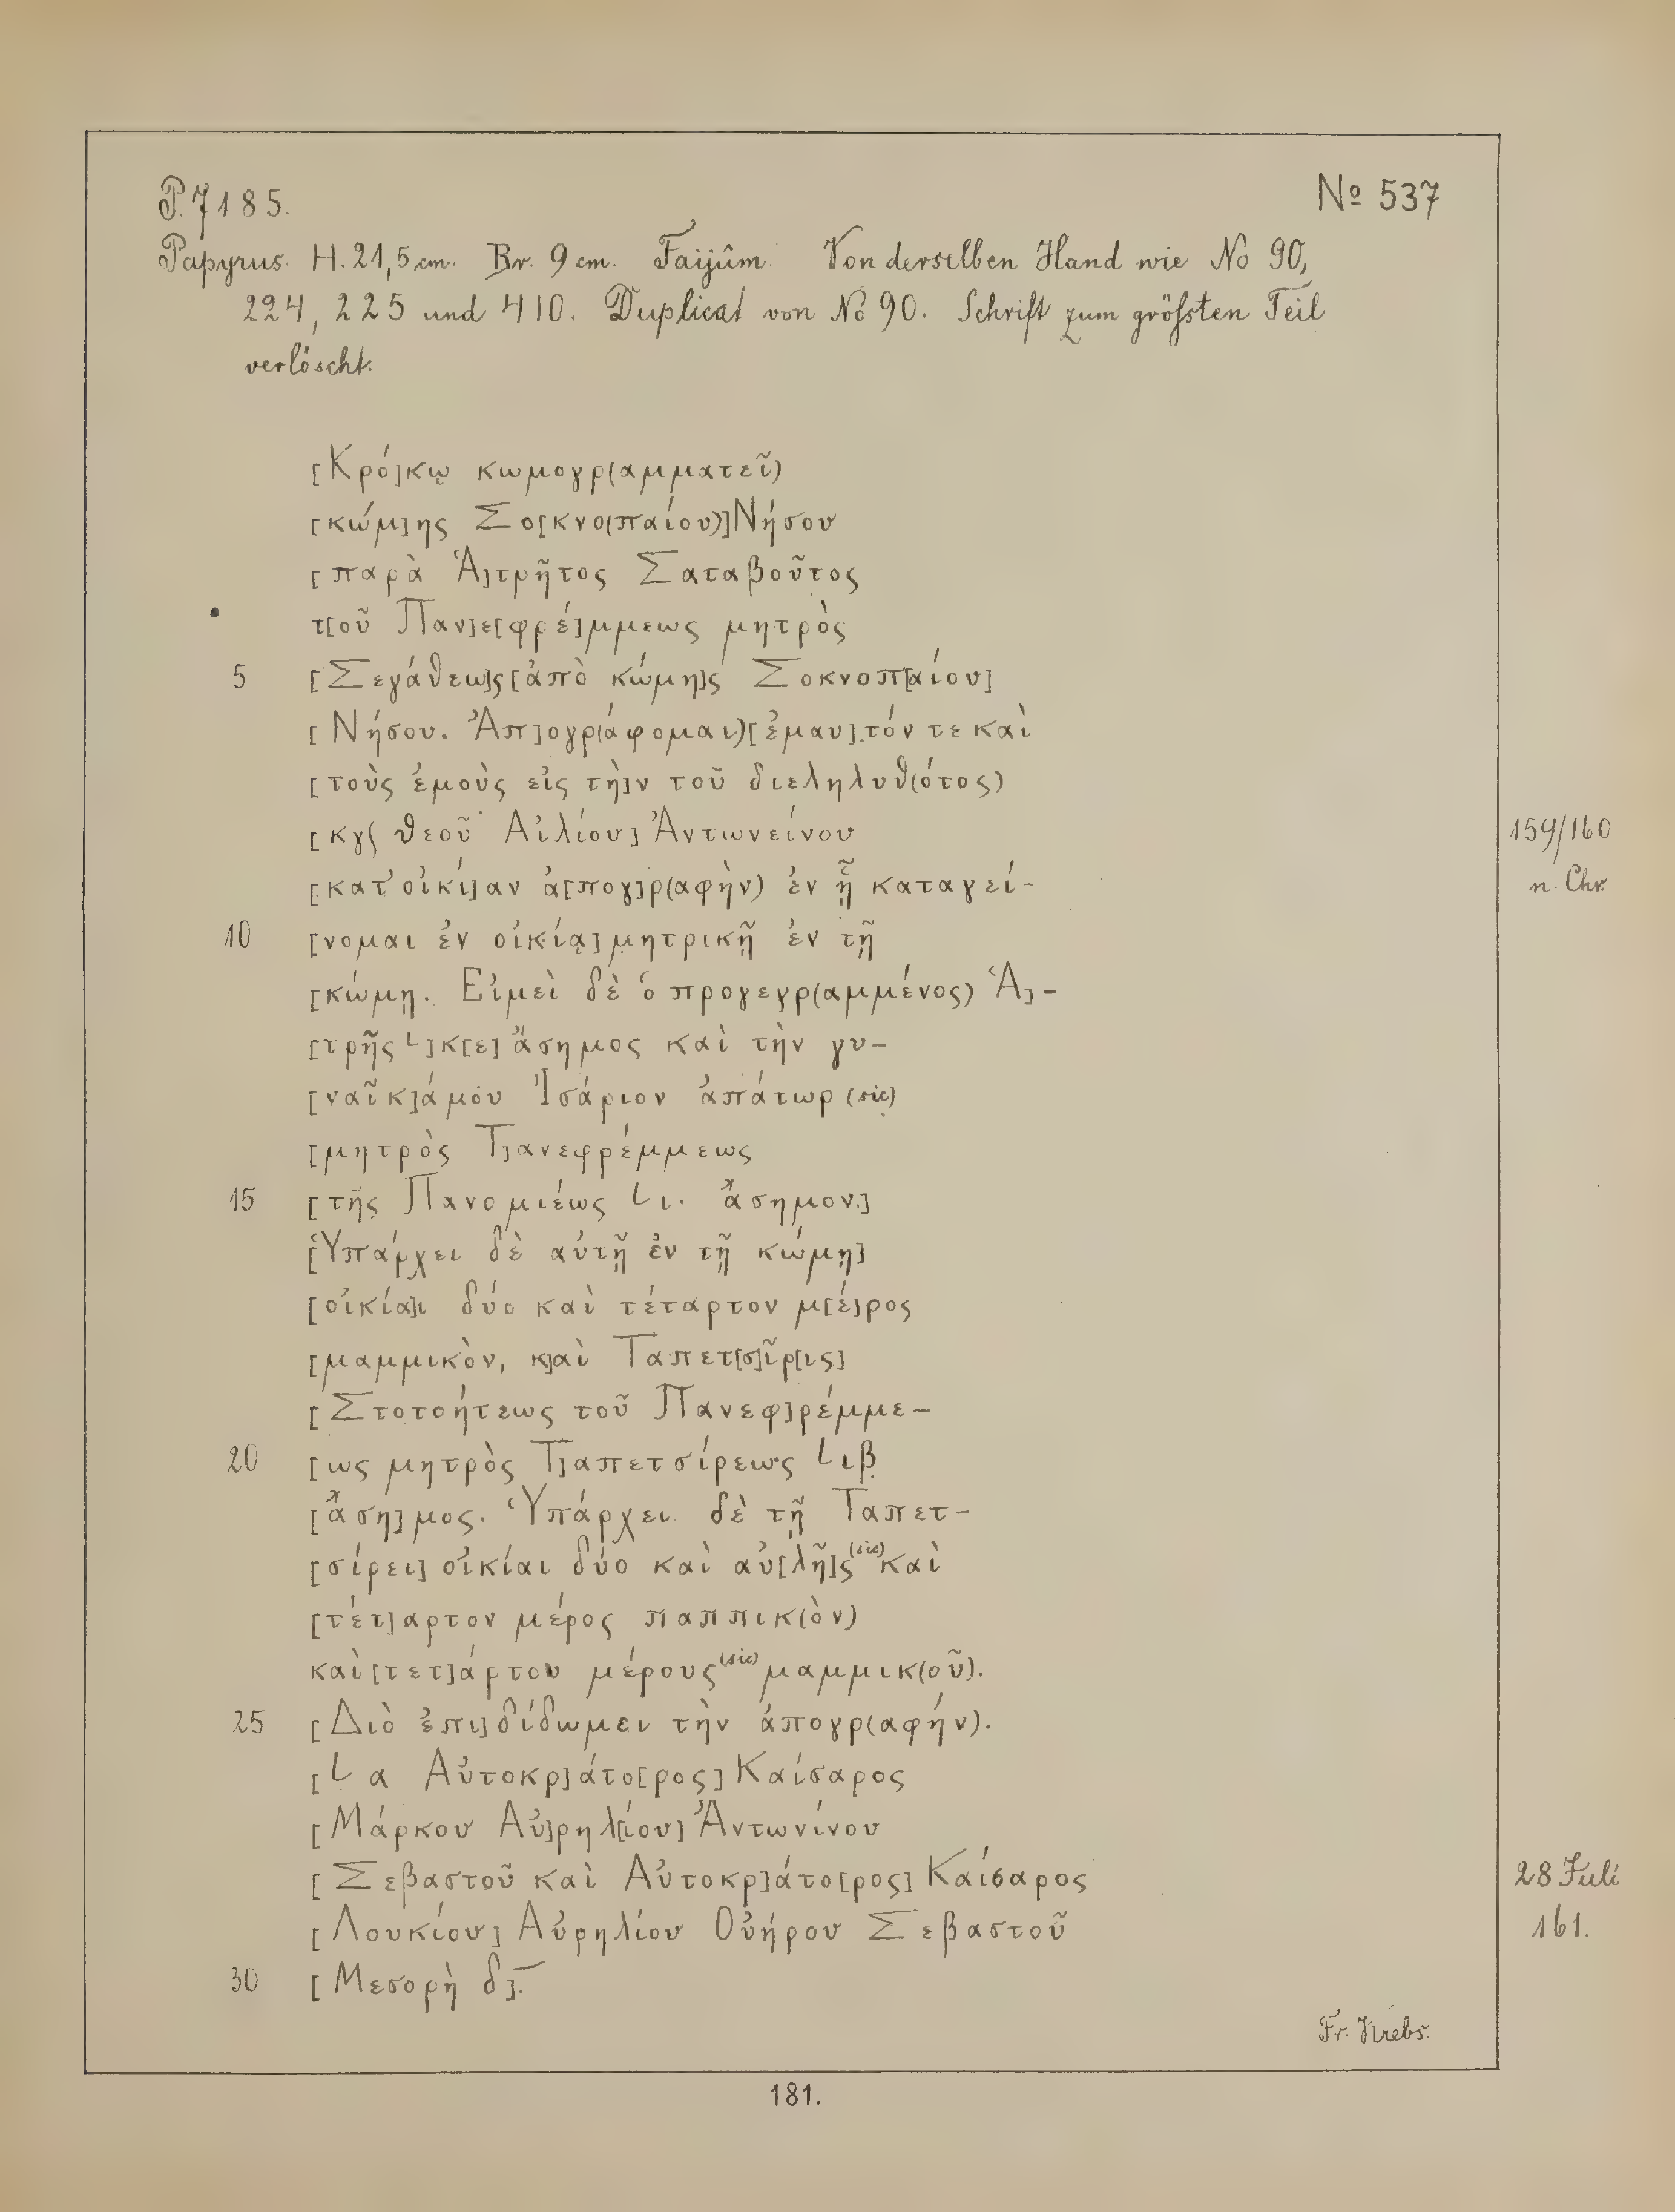 P. 7185.
No 537
Papyrus. H. 21,5 cm. Br. 9 cm. Faijûm. Von derselben Hand wie No 90,
224, 225 und 410. Duplicat von No 90. Schrift zum größten Teil
verlöscht.
[Κρό]κῳ κωμογρ(αμματεῖ)
[κώμ]ης Σο[κνο(παίου)] Νήσου
[παρὰ Ἁ]τρῆτος Σαταβοῦτος
τ[οῦ Παν]ε[φρέ]μμεως μητρὸς
5 [Σεγάθεω]ς [ἀπὸ κώμη]ς Σοκνοπ[αίου]
[Νήσου. Ἀπ]ογρ(άφομαι) [ἐμαυ]τόν τε καὶ
[τοὺς ἐμοὺς εἰς τὴ]ν τοῦ διεληλυθ(ότος)
[κγ⟨ θεοῦ Αἰλίου] Ἀντωνείνου
159/160
[κατ' οἰκί]αν ἀ[πογ]ρ(αφὴν) ἐν ᾗ καταγεί-
n. Chr.
10 [νομαι ἐν οἰκίᾳ] μητρικῇ ἐν τῇ
[κώμῃ. Εἰμεὶ δὲ ὁ προγεγρ(αμμένος) Ἁ]-
[τρῆς L] κ[ε] ἄσημος καὶ τὴν γυ-
[ναῖκ]ά μου Ἰσάριον ἀπάτωρ (sic)
[μητρὸς Τ]ανεφρέμμεως
15 [τῆς Πανομιέως L ι. ἄσημον.]
[Ὑπάρχει δὲ αὐτῇ ἐν τῇ κώμῃ]
[οἰκία]ι δύο καὶ τέταρτον μ[έ]ρος
[μαμμικὸν, κ]αὶ Ταπετ[σ]ῖρ[ις]
[Στοτοήτεως τοῦ Πανεφ]ρέμμε-
20 [ως μητρὸς Τ]απετσίρεως L ιβ
[ἄση]μος. Ὑπάρχει δὲ τῇ Ταπετ-
[σίρει] οἰκίαι δύο καὶ αὐ[λῆ]ς (sic) καὶ
[τέτ]αρτον μέρος παππικ(ὸν)
καὶ [τετ]άρτου μέρους (sic) μαμμικ(οῦ).
25 [Διὸ ἐπι]δίδωμει τὴν ἀπογρ(αφήν).
[L α Αὐτοκρ]άτο[ρος] Καίσαρος
[Μάρκου Αὐ]ρηλ[ίου] Ἀντωνίνου
[Σεβαστοῦ καὶ Αὐτοκρ]άτο[ρος] Καίσαρος
28 Juli
[Λουκίου] Αὐρηλίου Οὐήρου Σεβαστοῦ
161.
30 [Μεσορὴ δ].
Fr. Krebs.
181.